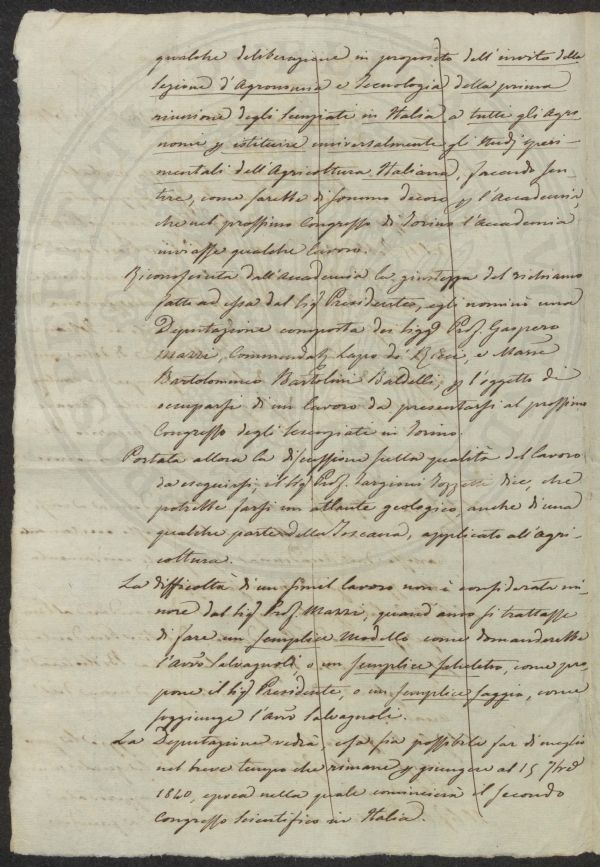 qualche deliberazione in proposito dell'invito della
Sezione d'Agronomia e Tecnologia della prima
riunione degli Scenziati in Italia a tutti gli Agro
nomi p istituire universalmente gli Studj speri-
mentali dell'Agricoltura Italiana, facendo sen-
tire, come sarebbe di sommo decoro p l'Accademia,
che nel prossimo Congresso di Torino l'Accademia
inviasse qualche lavoro.
Riconosciuta dall'Accademia la giustezza del richiamo
fatto ad essa dal Sig Presidente, egli nominò una
Deputazione composta dei Sigg Prof. Gaspero
Mazzi, Commendat Lapo de' Ricci, e March
Bartolommeo Bartolini Baldelli, p l'oggetto di
occuparsi di un lavoro da presentarsi al prossimo
Congresso degli Scenziati in Torino.
Portata allora la discussione sulla qualità del lavoro
da eseguirsi, il Sig Prof. Targioni Tozzetti dice, che
potrebbe farsi un atlante geologico, anche di una
qualche parte della Toscana, applicato all'Agri-
coltura.
La difficoltà di un simil lavoro non è considerata mi-
nore dal Sig Prof. Mazzi, quand'anco si trattasse
di fare un semplice modello come domanderebbe
l'Avv Salvagnoli, o un semplice scheletro, come pro
pone il Sig Presidente, o un semplice saggio, come
soggiunge l'Avv Salvagnoli.
La Deputazione vedrà, cosa sia possibile far di meglio
nel breve tempo che rimane p giungere al 15 7bre
1840, epoca nella quale comincierà il secondo
Congresso Scientifico in Italia.